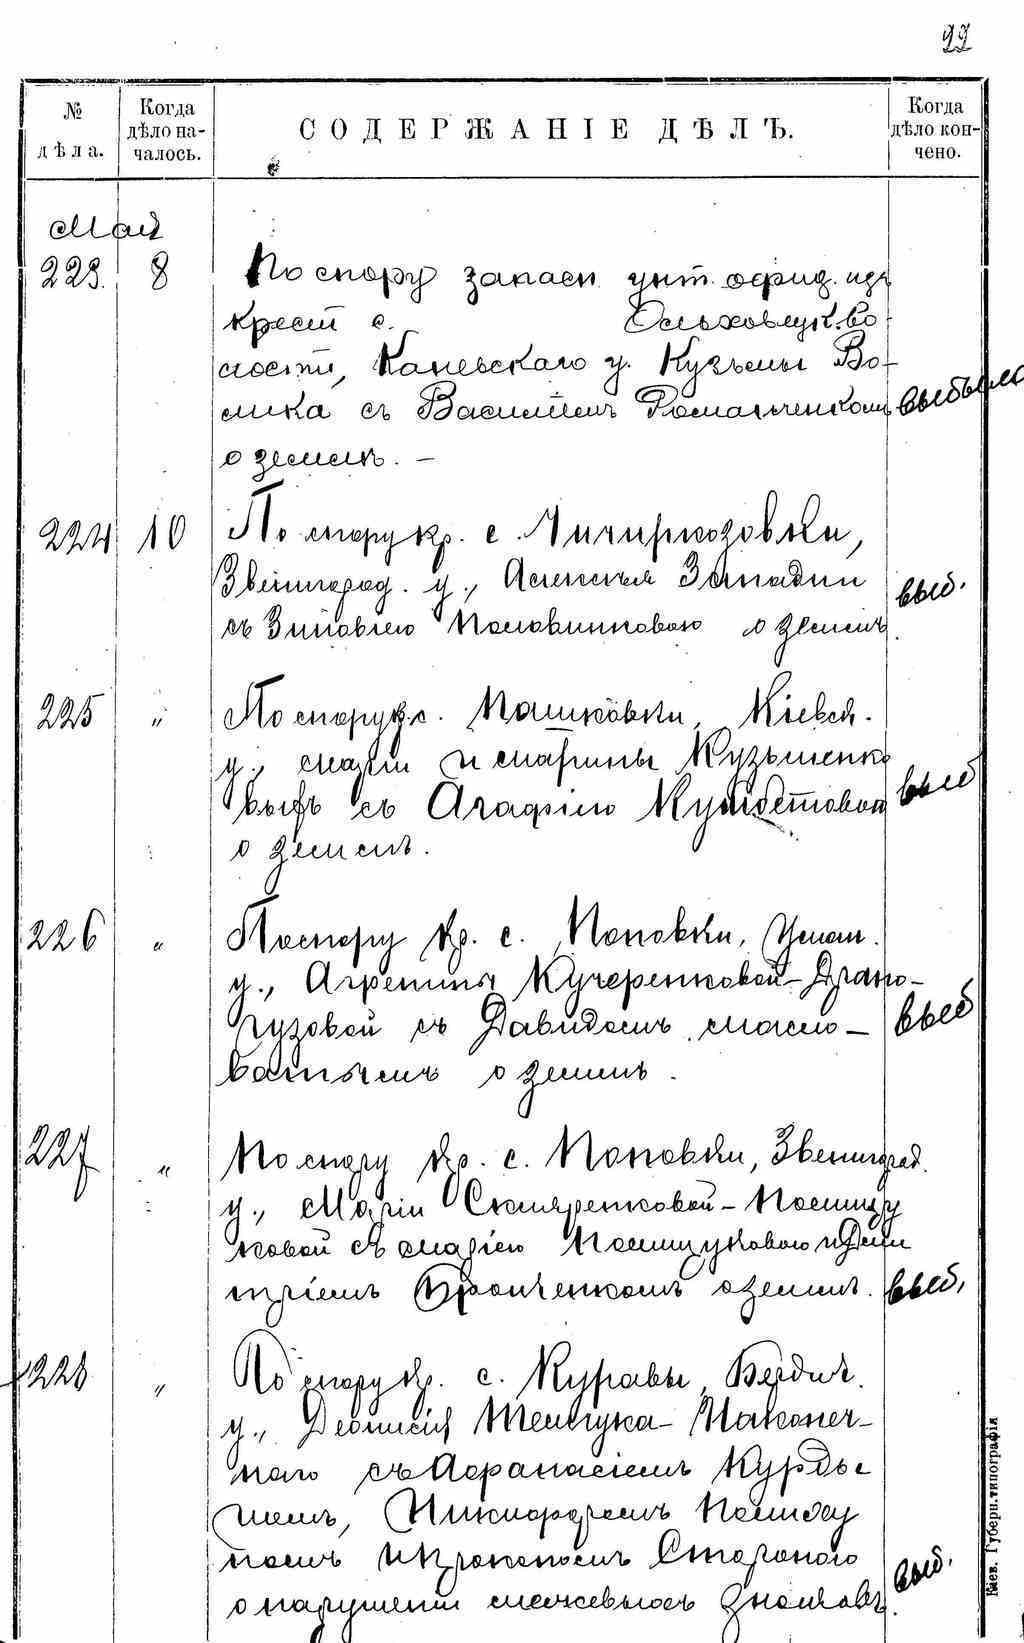 99
№
дѣла.
Когда
дѣло на-
чалось.
СОДЕРЖАНІЕ ДѢЛЪ.
Когда
дѣло кон-
чено.
Май
223. 8 По спору запасн. унт. офиц. изъ
крест с. Ольховецк. во-
лости, Каневскаго у. Кузьмы Во-
лика съ Василіемъ Романченкомъ выбыло
о землѣ. –
224 10 По спору кр. с.
Звенигород. у., Алексѣя Западни выб.
съ Зиновіею Половинковою о землѣ
225 „ По спору кр. с. Машковки, Кіевск.
у., Маріи и Марины Кузьменко
выхъ съ Агафіею выб
о землѣ.
226 „ По спору кр. с. Поповки, Уман.
у., Агрепины Кучеренковой-Драно-
гузовой съ Давидомъ Масло- выб
ватымъ о землѣ.
227 „ По спору кр. с. Поповки, Звенигород.
у., Маріи Скляренковой-Полищу
ковой съ Маріею Полищуковою и Дми
тріемъ о землѣ. выб,
228 „ По спору кр. с. Куравы, Бердич.
у., Деонисія Наконеч-
наго съ Афанасіемъ Курды
Никифоромъ
и Прокопомъ
о нарушеніи межевыхъ знаковъ. выб.
Кіев. Губерн. типографія